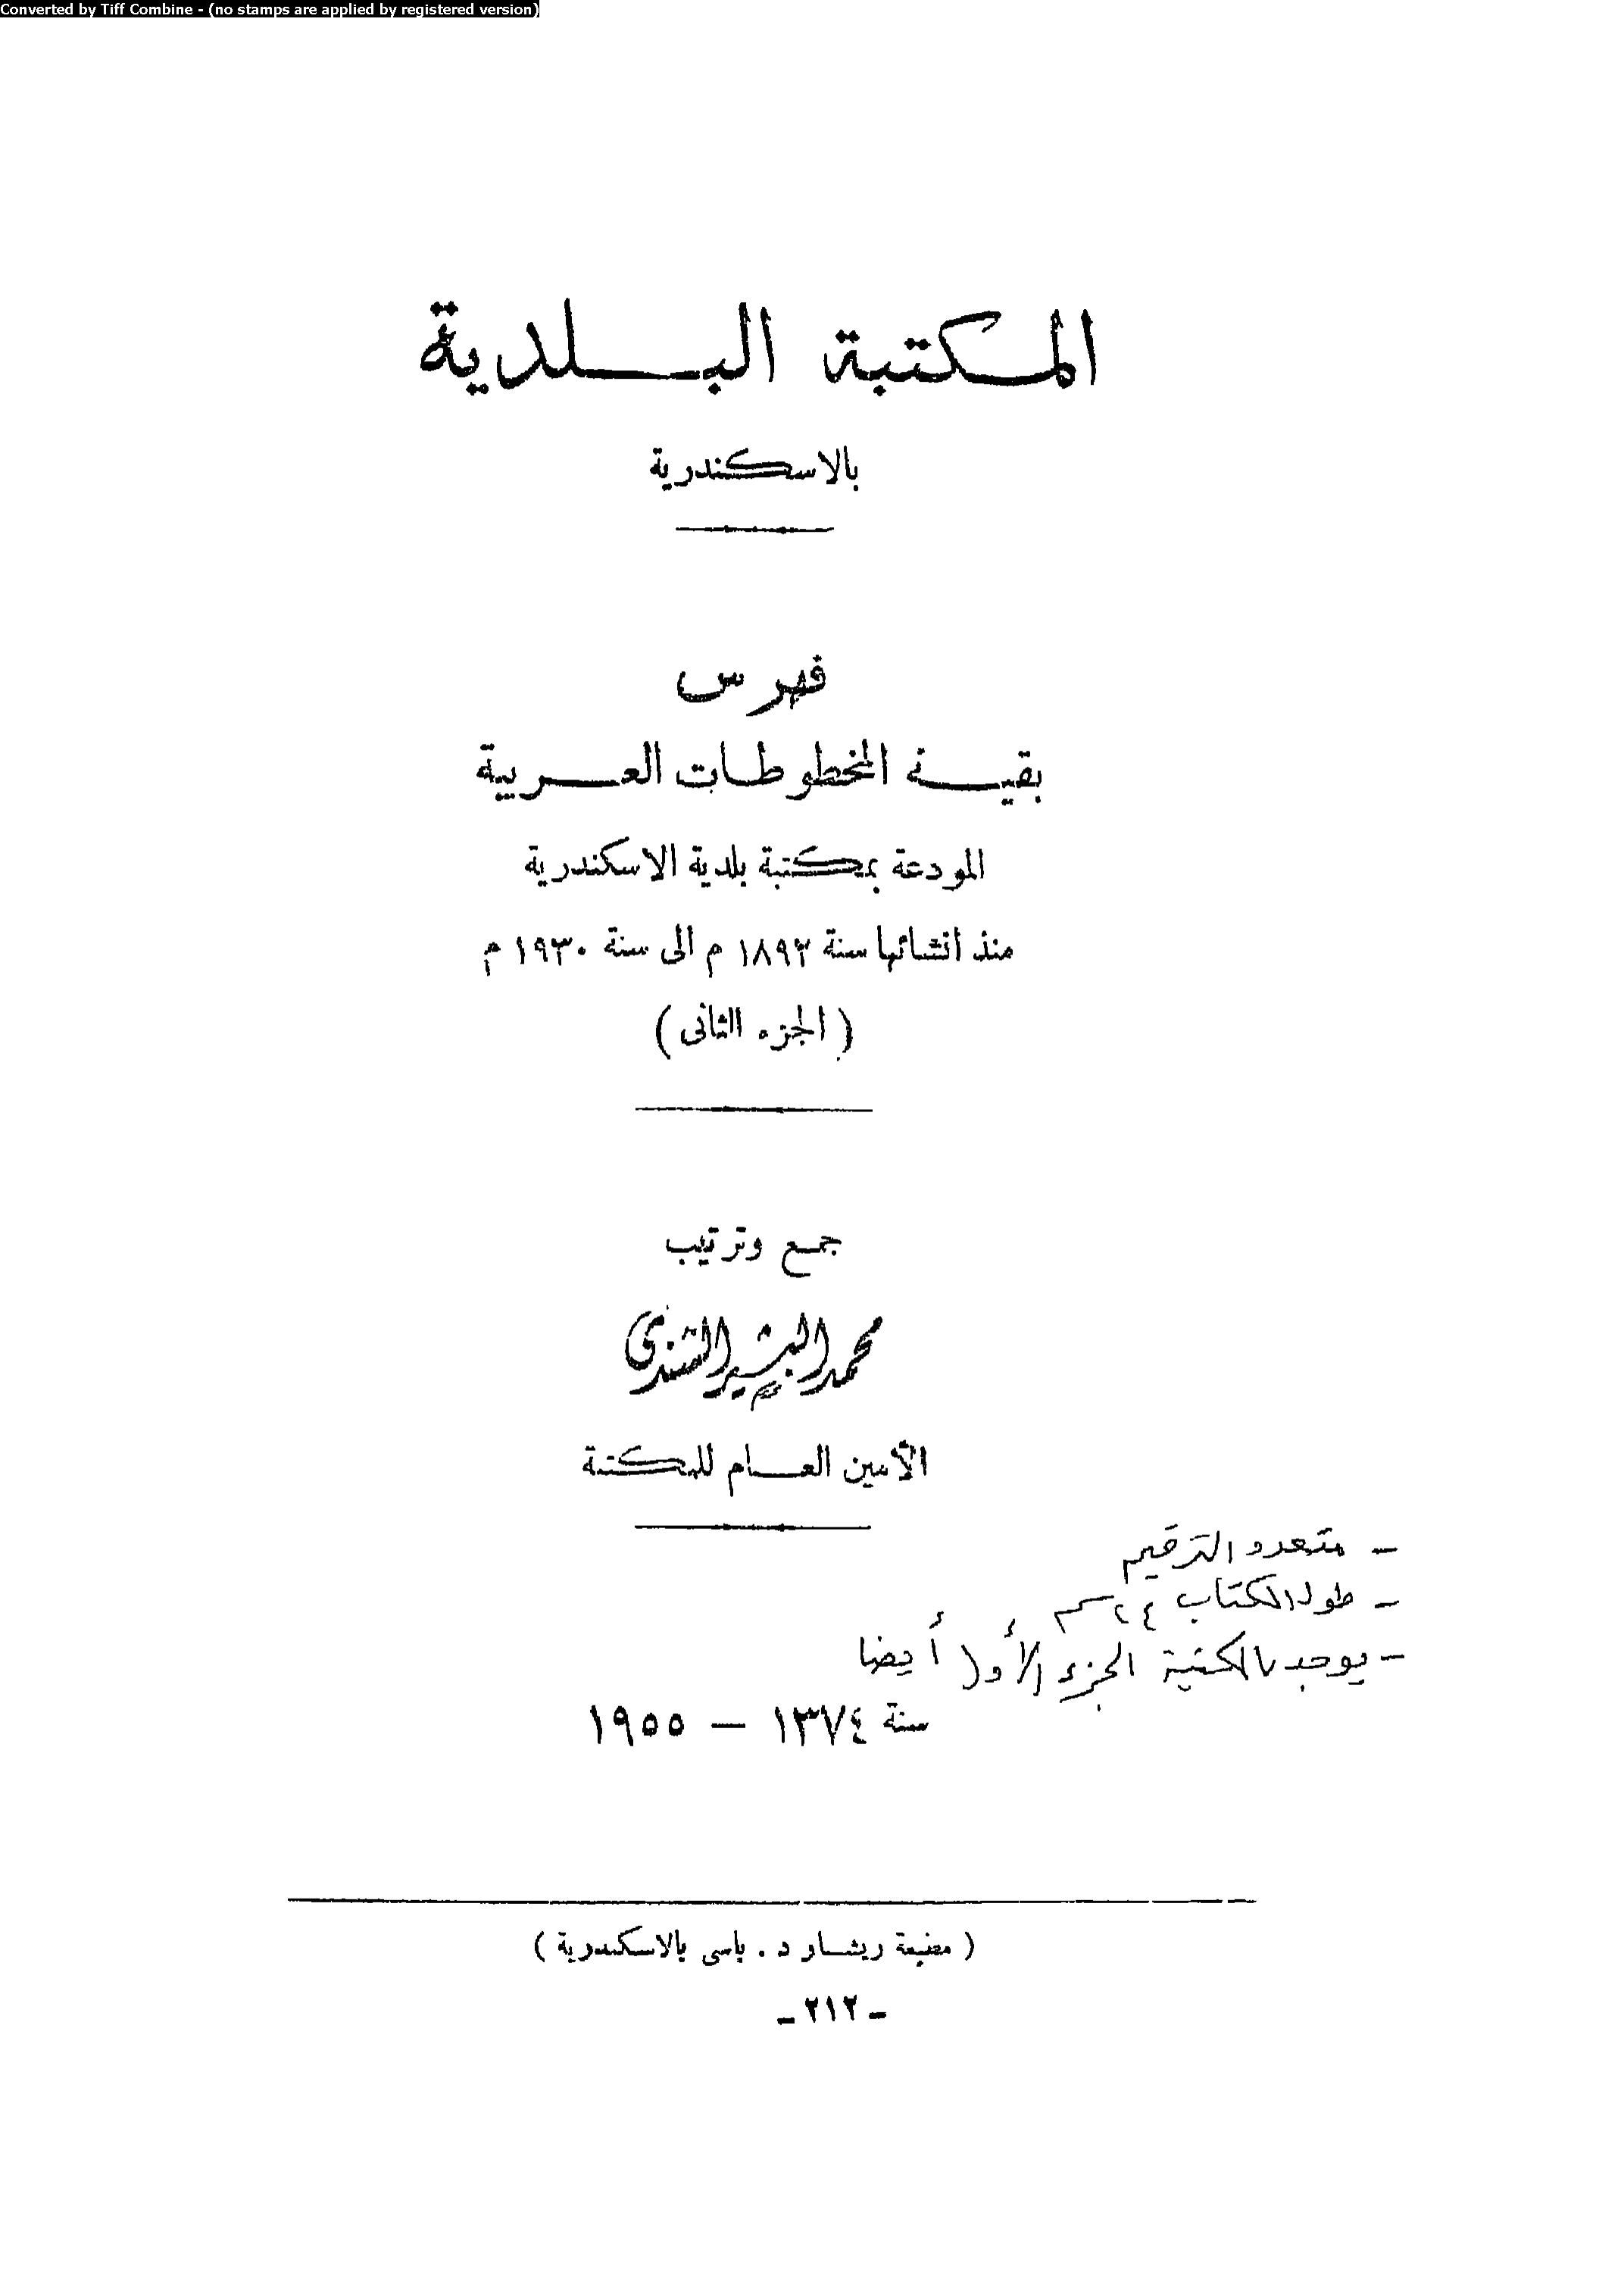 Converted by Tiff Combine - (no stamps are applied by registered version)
المكتبة البلدية
بالاسكندرية
فهرس
بقية المخطوطات العربية
المودعة بمكتبة بلدية الاسكندرية
منذ انشائها سنة ١٨٩٢ م الى سنة ١٩٣٠ م
( الجزء الثانى )
جمع وترتيب
محمد البشير الشندى
الأمين العام للمكتبة
- متعدد الترقيم
- طول الكتاب ٢٤ سم
- يوجد بالمكتبة الجزء الأول أيضا
سنة ١٣٧٤ – ١٩٥٥
( مطبعة ريشار د . باسى بالاسكندرية )
- ٢١٢ -